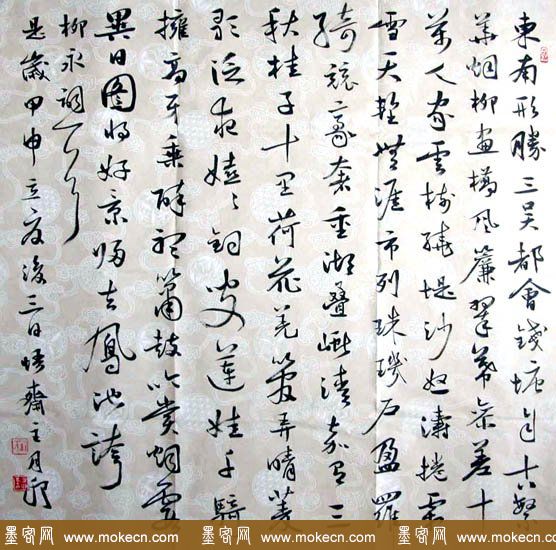 東南形勝三吴都會錢塘自古繁
華烟柳畫橋風簾翠幕参差十
萬人家雲樹繞堤沙怒濤捲霜
雪天塹無涯市列珠璣户盈羅
綺競豪奢重湖疊巘清嘉有三
秋桂子十里荷花羌管弄晴菱
歌泛夜嬉〻釣叟蓮娃千騎
擁高牙乘醉聽簫鼓吟賞烟霞
異日圖將好景歸去鳳池誇
柳永詞
是歲甲申立夏後三日悟齋主
墨客网 www.mokecn.com 墨客网 www.mokecn.com 墨客网 www.mokecn.com